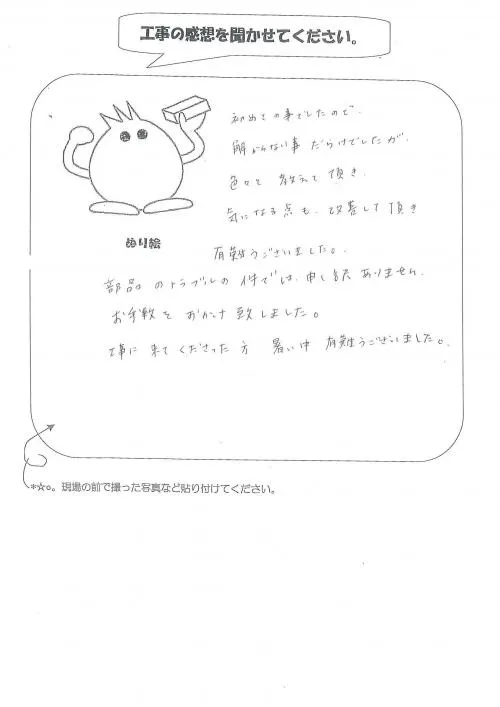 工事の感想を聞かせてください。
初めての事でしたので、
解からない事だらけでしたが、
色々と教えて頂き、
気になる点も、改善して頂き
ぬり絵
有難うございました。
部品のトラブルの件では、申し訳ありません、
お手数をおかけ致しました。
工事に来てくださった方 暑い中 有難うございました。
*☆○。現場の前で撮った写真など貼り付けてください。